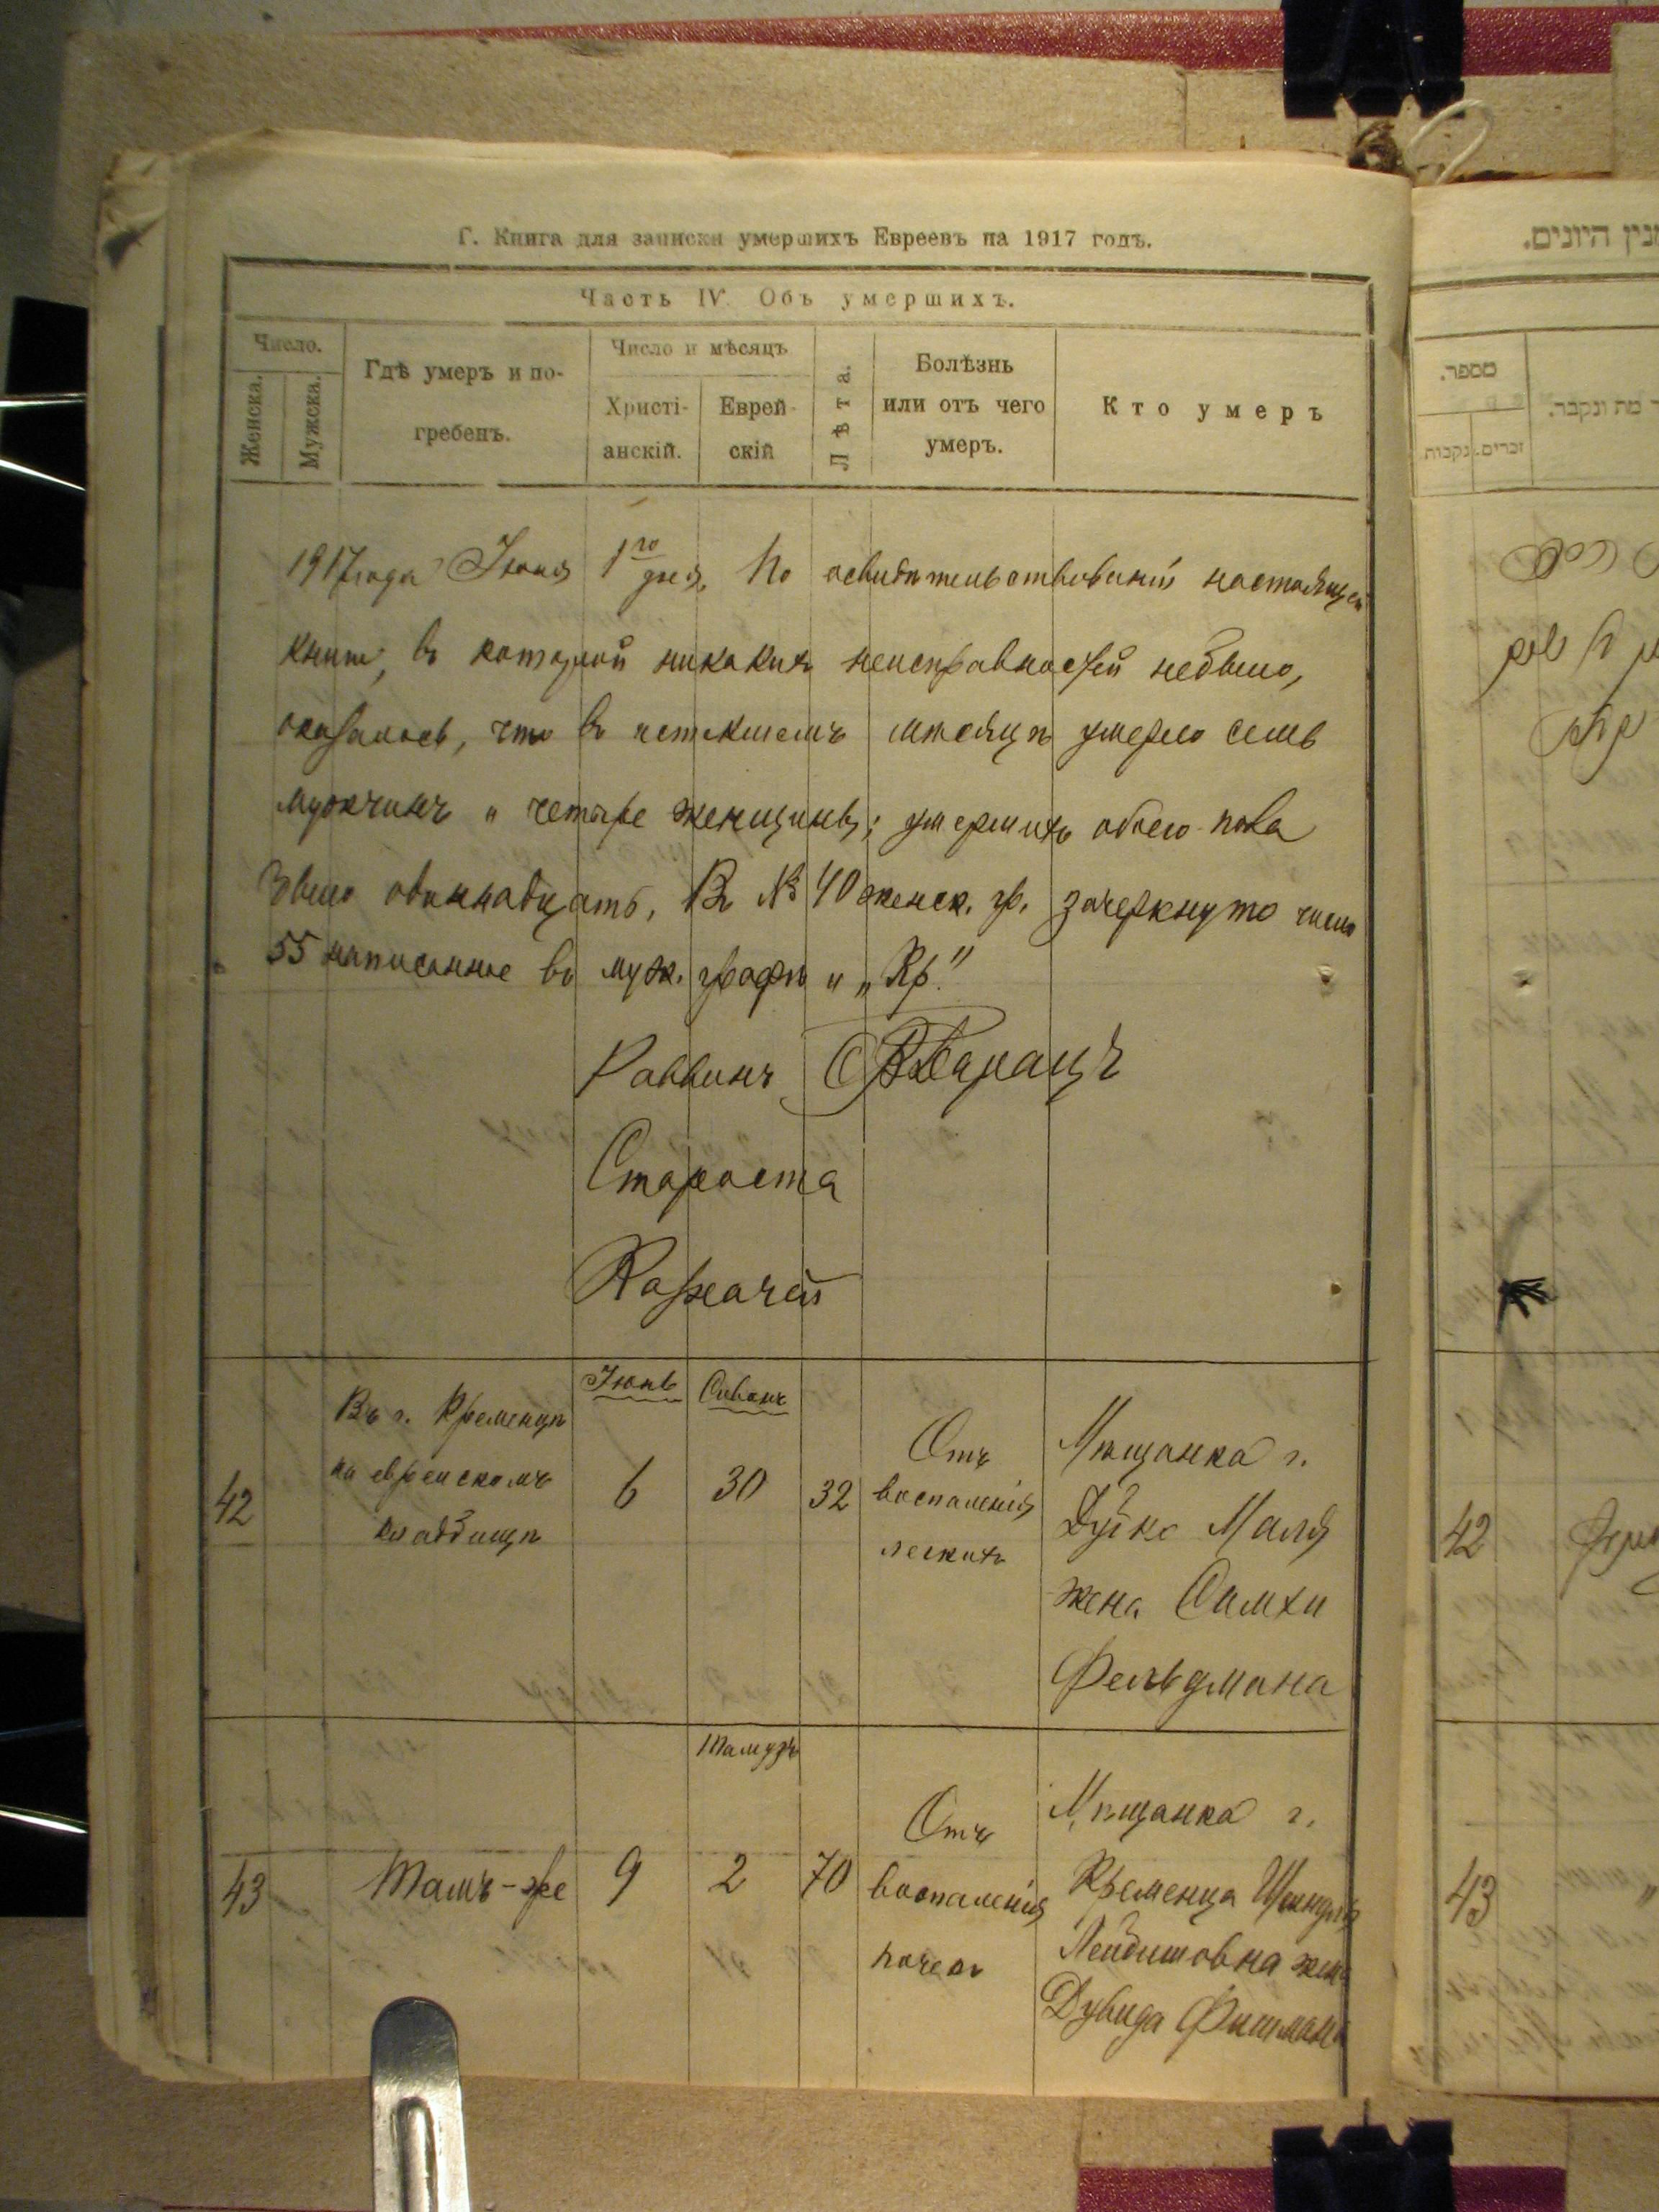 Г. Книга для записки умершихъ Евреевъ на 1917 годъ.
Часть IV. Объ умершихъ.
Число.
Женска.
Мужска.
Гдѣ умеръ и по-
гребенъ.
Число и мѣсяцъ
Христі-
анскій.
Еврей-
скій
Лѣта.
Болѣзнь
или отъ чего
умеръ.
Кто умеръ
1917 года Іюня 1го дня. По освидѣтельствованіи настоящей
книги, въ которой никакихъ неисправностей небыло,
оказалось, что въ истекшемъ мѣсяцѣ умерло семь
мужчинъ и четыре женщины; умершихъ обоего пола
было одиннадцать. Въ № 40 женск. гр. зачеркнуто число
55 написанное въ муж. графѣ и „Кр."
Раввинъ
Староста
Казначей
Іюнь Сиванъ
42
Въ г. Кременцѣ
на еврейскомъ
кладбищѣ
6
30
32
Отъ
воспаленія
легкихъ
Мѣщанка г.
Дубно Маля
жена Симхи
Фельдмана
Тамузъ
43
Тамъ-же
9
2
70
Отъ
воспаленія
почекъ
Мѣщанка г.
Кременца Шейндля
жена
Дувида Фишмана
ספר.
זכרים.
נקבות
מת ונקבר.
42
43